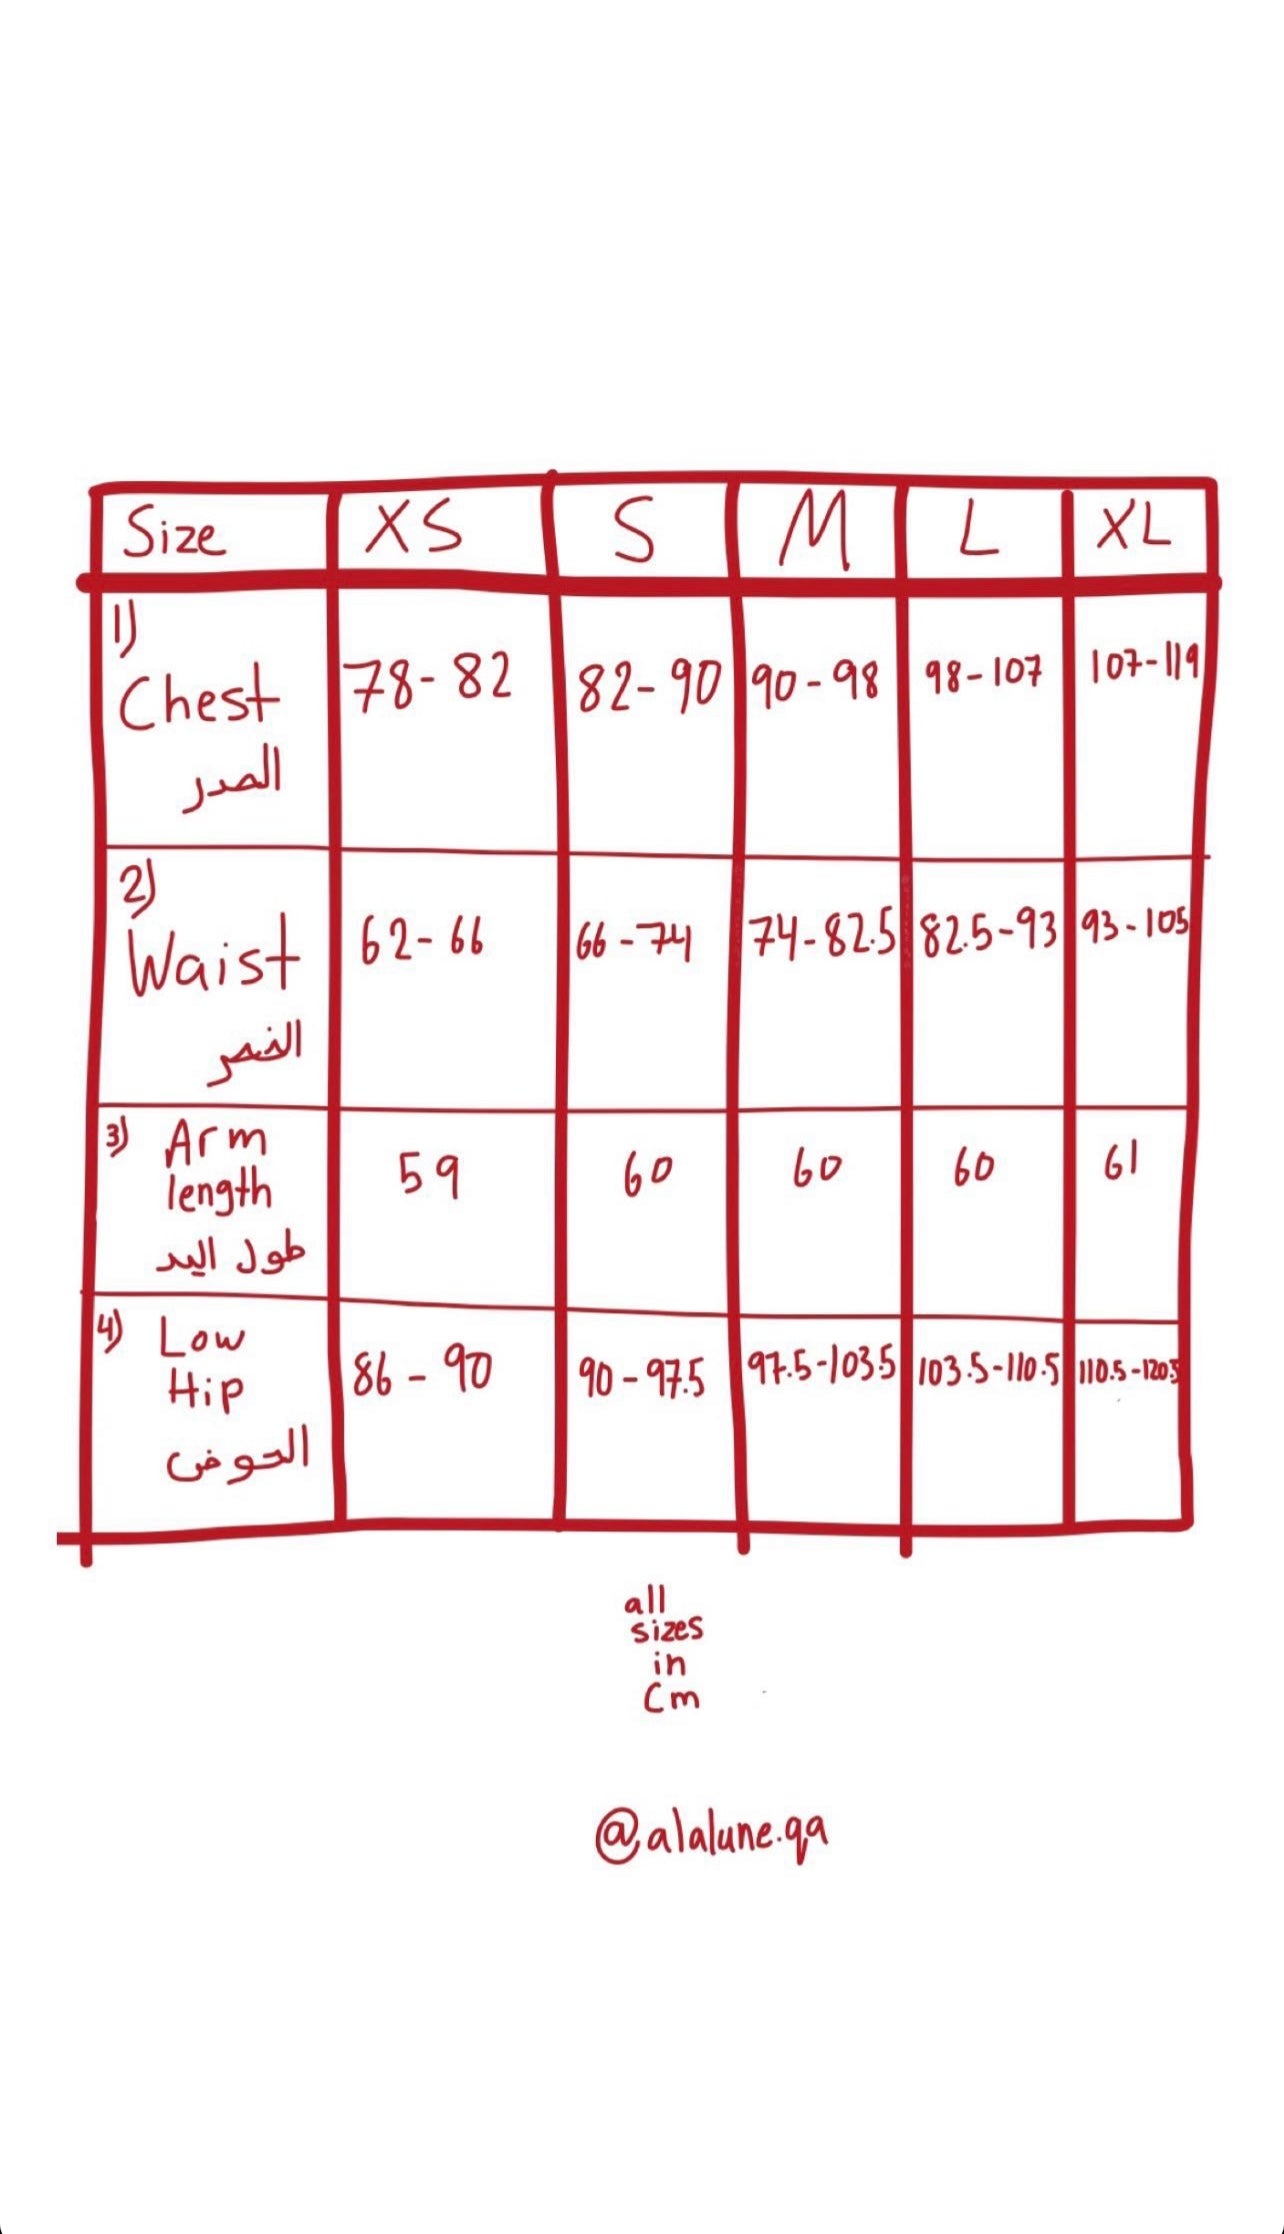 Size XS S M L XL
1)
Chest 78-82 82-90 90-98 98-107 107-119
الصدر
2)
Waist 62-66 66-74 74-82.5 82.5-93 93-105
الخصر
3) Arm 59 60 60 60 61
length
طول اليد
4) Low
Hip 86-90 90-97.5 97.5-103.5 103.5-110.5 110.5-120.5
الحوض
all
sizes
in
Cm
@alalune.qa